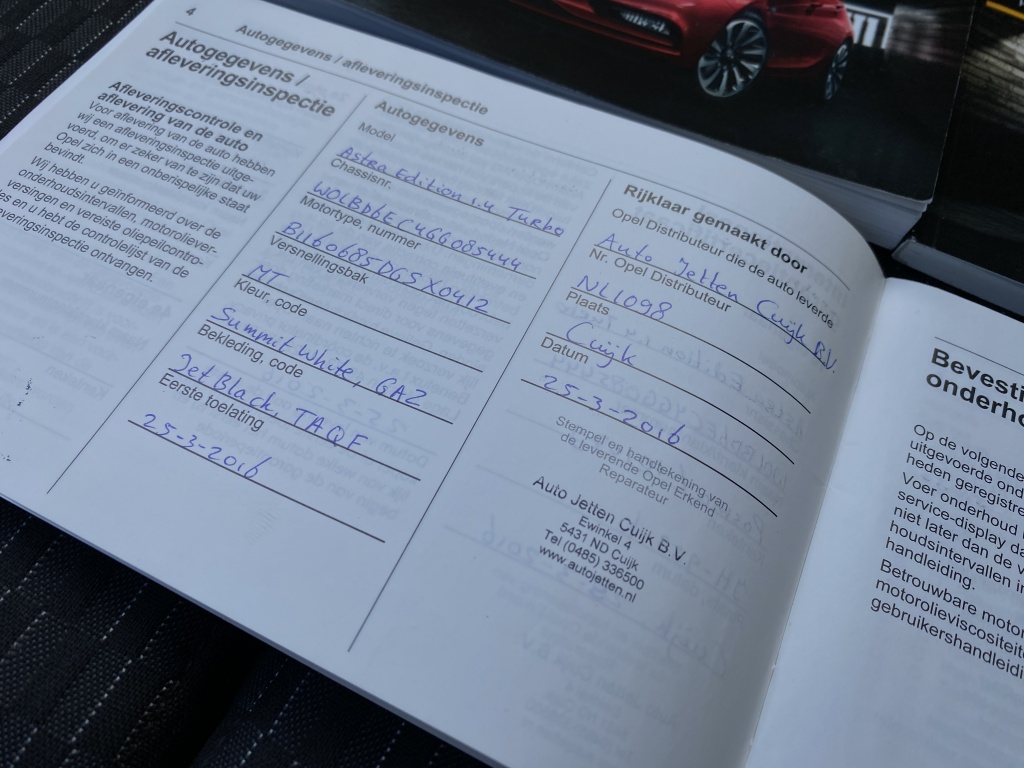 4
Autogegevens / afleveringsinspectie
Autogegevens /
afleveringsinspectie
Afleveringscontrole en
aflevering van de auto
Voor aflevering van de auto hebben
wij een afleveringsinspectie uitge-
voerd, om er zeker van te zijn dat uw
Opel zich in een onberispelijke staat
bevindt.
Wij hebben u geïnformeerd over de
onderhoudsintervallen, motoroliever-
versingen en vereiste oliepeilcontro-
es en u hebt de controlelijst van de
everingsinspectie ontvangen.
Autogegevens
Model
Astra Edition 1.4 Turbo
Chassisnr.
W0LBD6EC4GG085444
Motortype, nummer
B1160685DGSX0412
Versnellingsbak
MT
Kleur, code
Summit White, GAZ
Bekleding, code
Jet Black, TAQF
Eerste toelating
25-3-2016
Rijklaar gemaakt door
Opel Distributeur die de auto leverde
Auto Jetten Cuijk B.V.
Nr. Opel Distributeur
NL1098
Plaats
Cuijk
Datum
25-3-2016
Stempel en handtekening van
de leverende Opel Erkend
Reparateur
Auto Jetten Cuijk B.V.
Ewinkel 4
5431 ND Cuijk
Tel (0485) 336500
www.autojetten.nl
Bevesti
onderho
Op de volgende
uitgevoerde ond
heden geregistre
Voer onderhoud
service-display da
niet later dan de v
houdsintervallen in
handleiding.
Betrouwbare motor
motorolieviscositeite
gebruikershandleidi